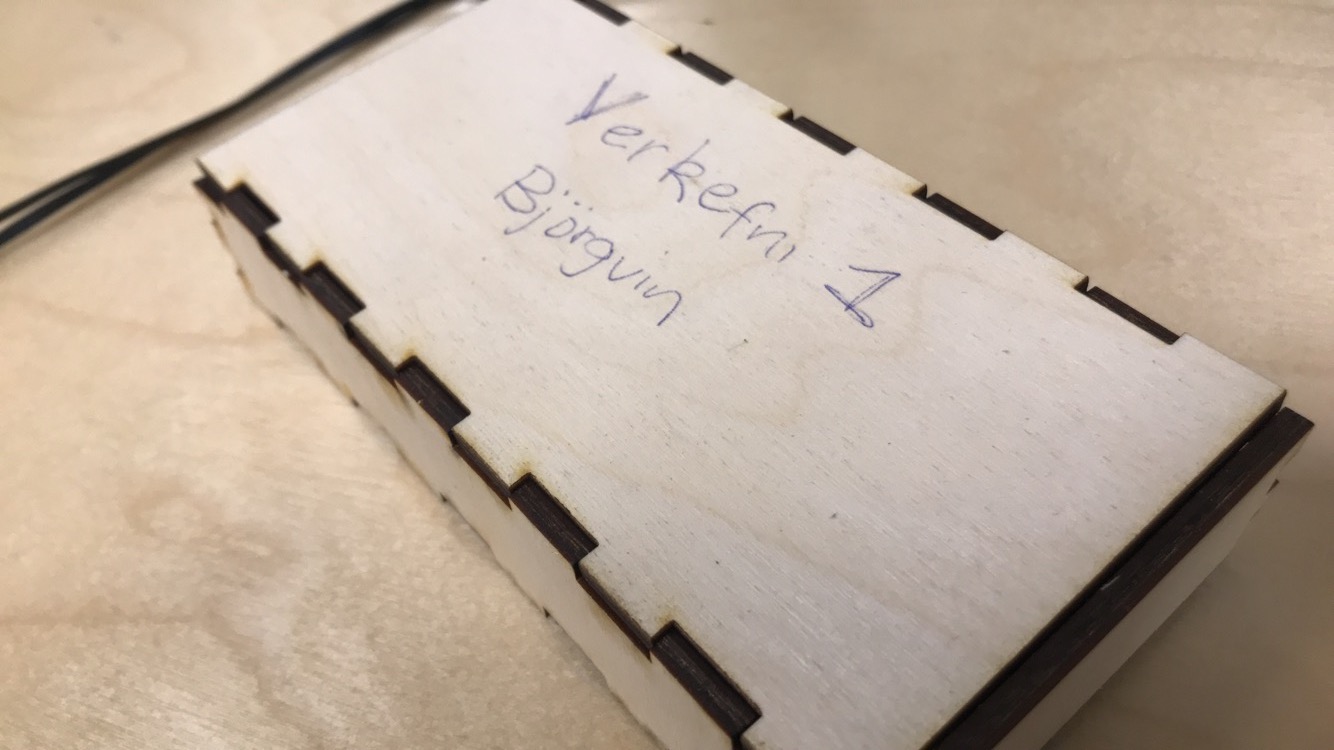 Verkefni 1
Björgvin